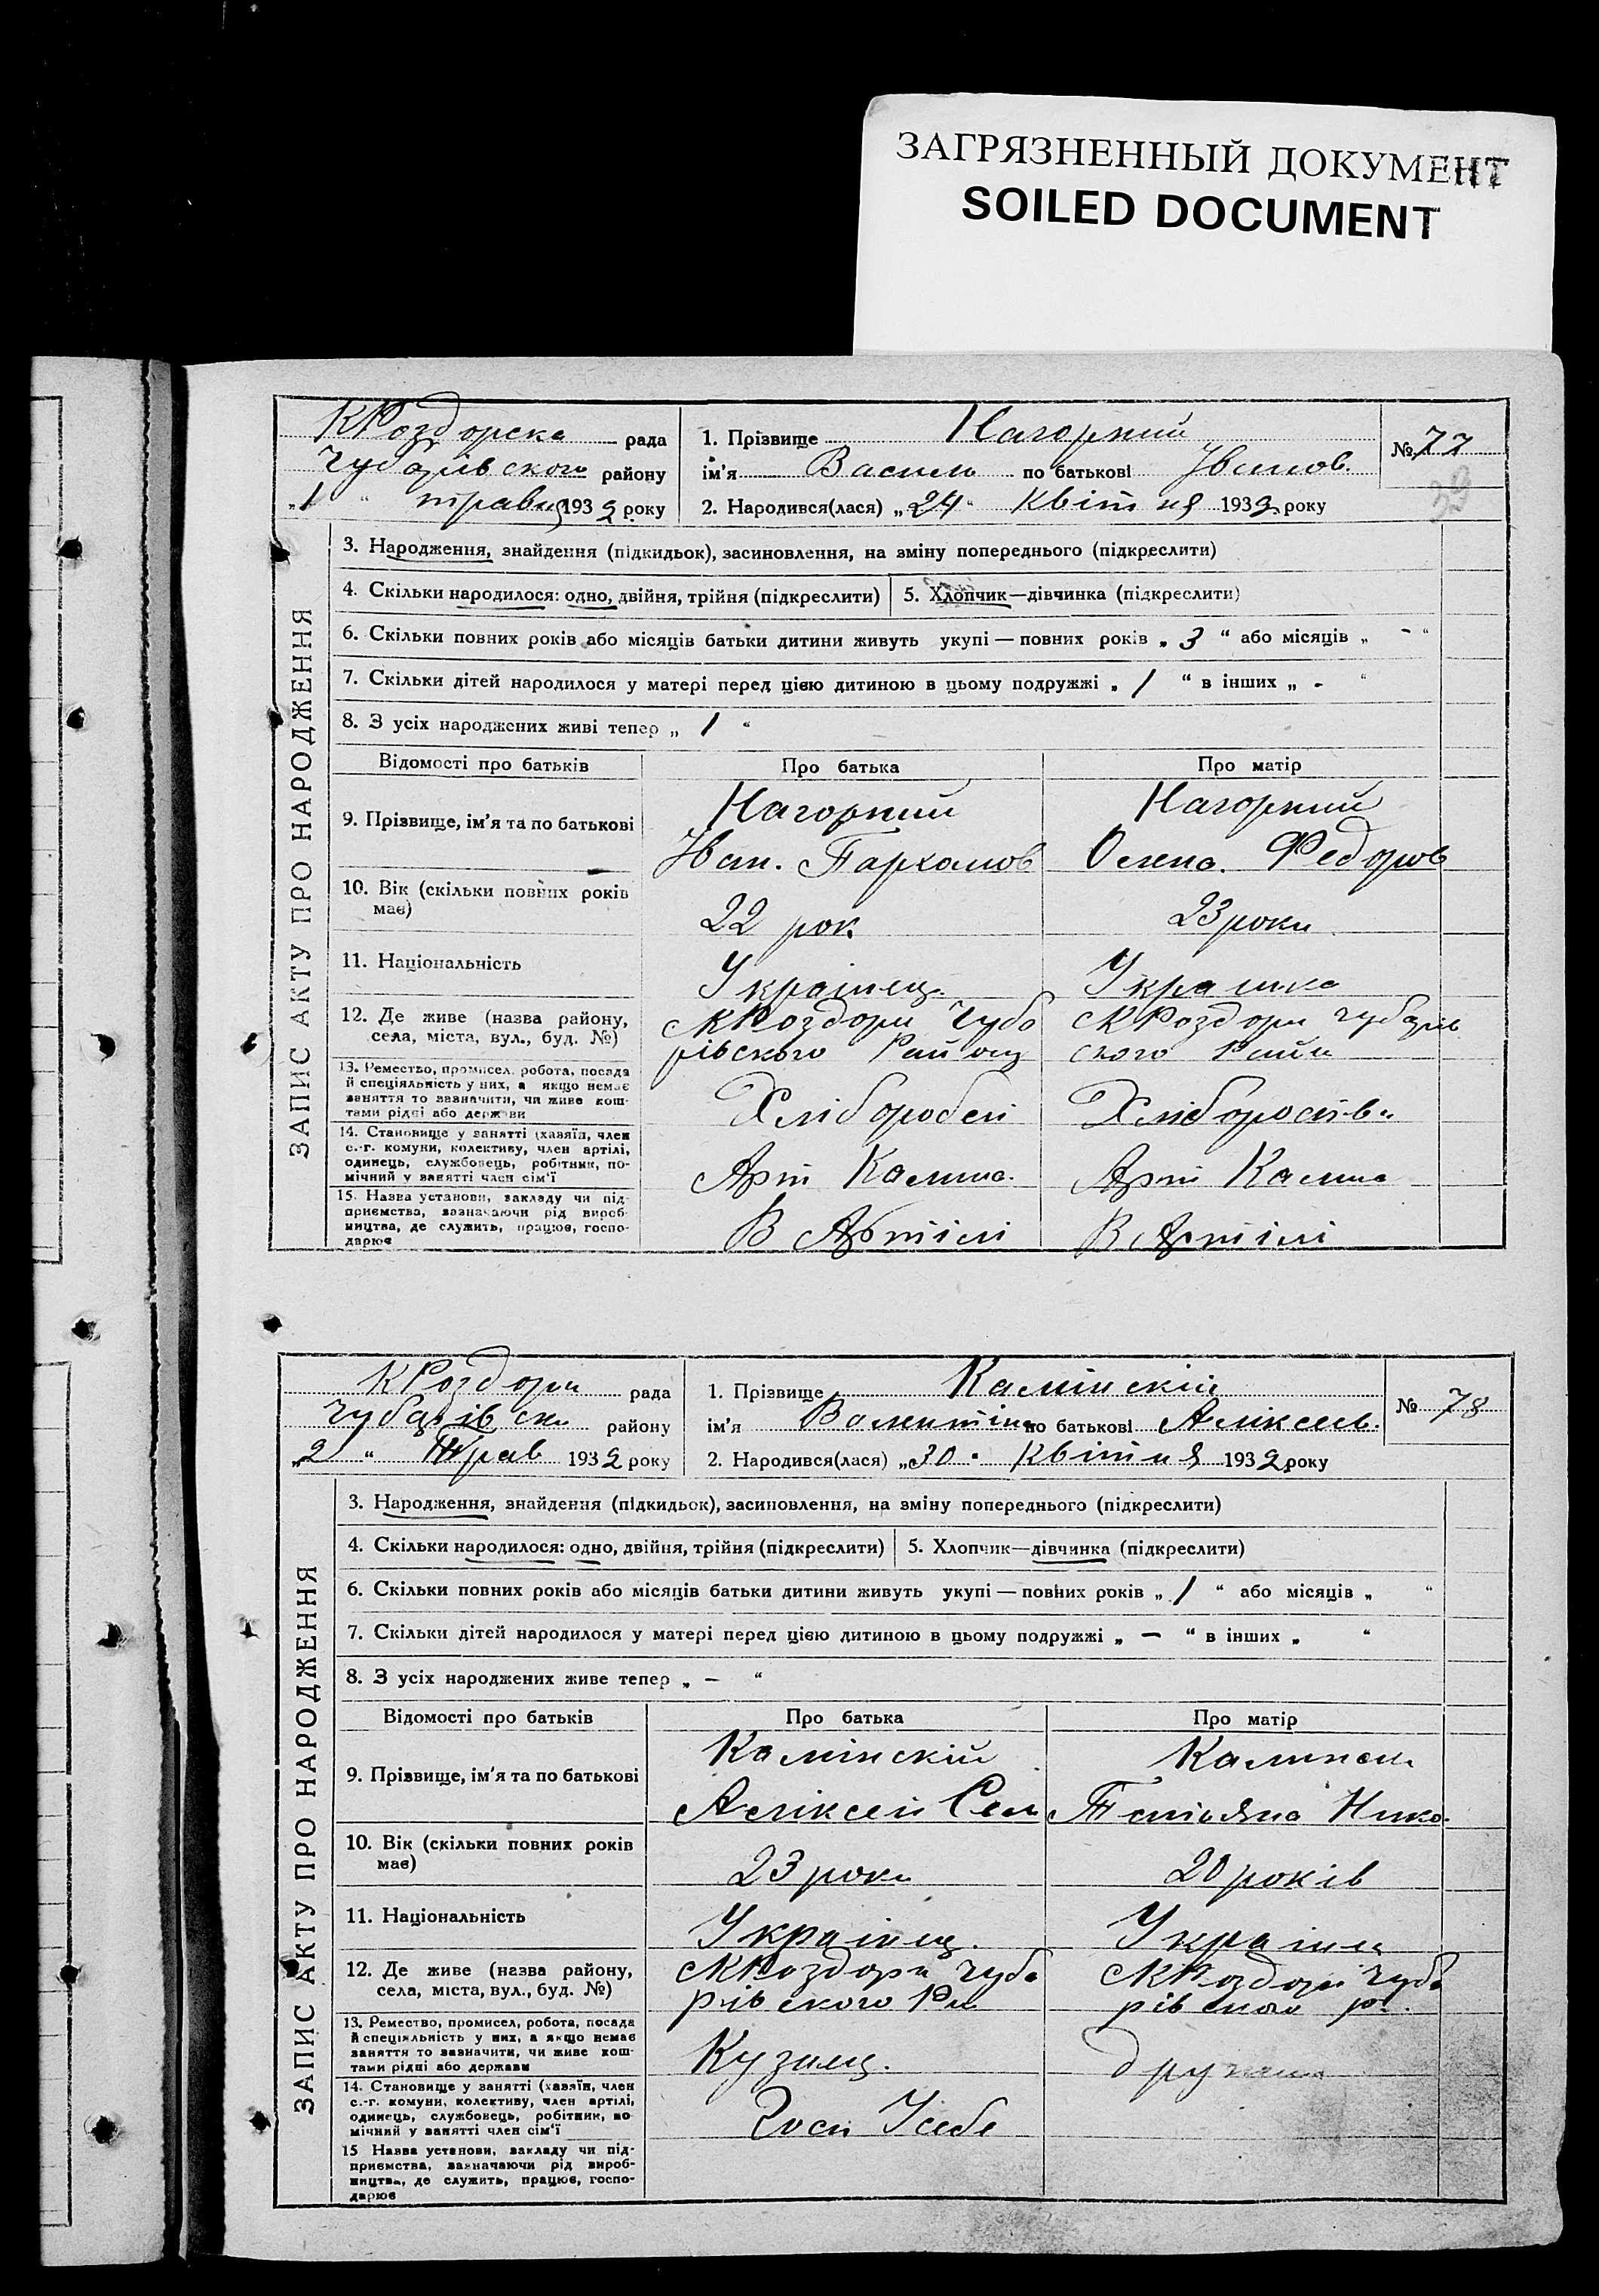 ЗАГРЯЗНЕННЫЙ ДОКУМЕНТ
SOILED DOCUMENT
КРоздорска рада
Чубарівського району
„1“ травня 1932 року
1. Прізвище Нагорний
ім'я Василь по батькові Іванов.
2. Народився(лася) „24“ Квітня 1932 року
№ 77
39
ЗАПИС АКТУ ПРО НАРОДЖЕННЯ
3. Народження, знайдення (підкидьок), засиновлення, на зміну попереднього (підкреслити)
4. Скільки народилося: одно, двійня, трійня (підкреслити) 5. Хлопчик—дівчинка (підкреслити)
6. Скільки повних років або місяців батьки дитини живуть укупі — повних років „ 3 “ або місяців „ - “
7. Скільки дітей народилося у матері перед цією дитиною в цьому подружжі „ 1 “ в інших „ - “
8. З усіх народжених живі тепер „ 1 “
Відомості про батьків Про батька Про матір
9. Прізвище, ім'я та по батькові
Нагорний
Іван. Пархомов
Нагорний
Олена. Федоров
10. Вік (скільки повних років
має)
22 рок
23 роки
11. Національність
Українец.
Украинка
12. Де живе (назва району,
села, міста, вул., буд. №)
с КРоздори Чуба
рівского Району
с КРоздори Чубарів
ского
13. Ремество, промисел, робота, посада
й спеціяльність у них, а якщо немає
заняття то зазначити, чи живе кош-
тами рідні або держави
Хлібороб
14. Становище у занятті (хазяїн, член
с.-г. комуни, колективу, член артілі,
одинець, службовець, робітник, по-
мічний у занятті член сім'ї
Арт
Арт
15. Назва установи, закладу чи під-
приємства, зазначаючи рід вироб-
ництва, де служить, працює, госпо-
дарює
В Артілі
В Артілі
КРоздори рада
Чубарівск району
„2“ Трав 1932 року
1. Прізвище Камінскій
ім'я Валентіна по батькові Аліксеев.
2. Народився(лася) „30“ Квітня 1932 року
№ 78
ЗАПИС АКТУ ПРО НАРОДЖЕННЯ
3. Народження, знайдення (підкидьок), засиновлення, на зміну попереднього (підкреслити)
4. Скільки народилося: одно, двійня, трійня (підкреслити) 5. Хлопчик—дівчинка (підкреслити)
6. Скільки повних років або місяців батьки дитини живуть укупі — повних років „ 1 “ або місяців „ “
7. Скільки дітей народилося у матері перед цією дитиною в цьому подружжі „ — “ в інших „ “
8. З усіх народжених живе тепер „ — “
Відомості про батьків Про батька Про матір
9. Прізвище, ім'я та по батькові
Камінскій
Аліксей Сем
Каминск
Татьяна Нико.
10. Вік (скільки повних років
має)
23 роки
20 років
11. Національність
Українец.
12. Де живе (назва району,
села, міста, вул., буд. №)
с КРоздори Чуба
рівского
с КРоздори Чуба
рівского
13. Ремество, промисел, робота, посада
й спеціяльність у них, а якщо немає
заняття то зазначити, чи живе кош-
тами рідні або держави
Кузнец.
14. Становище у занятті (хазяїн, член
с.-г. комуни, колективу, член артілі,
одинець, службовець, робітник, по-
мічний у занятті член сім'ї
Госп Усебе
15 Назва установи, закладу чи під-
приємства, зазначаючи рід вироб-
ництва, де служить, працює, госпо-
дарює